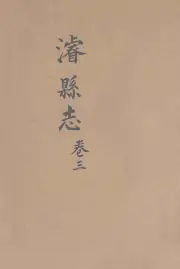 濬縣志
卷三